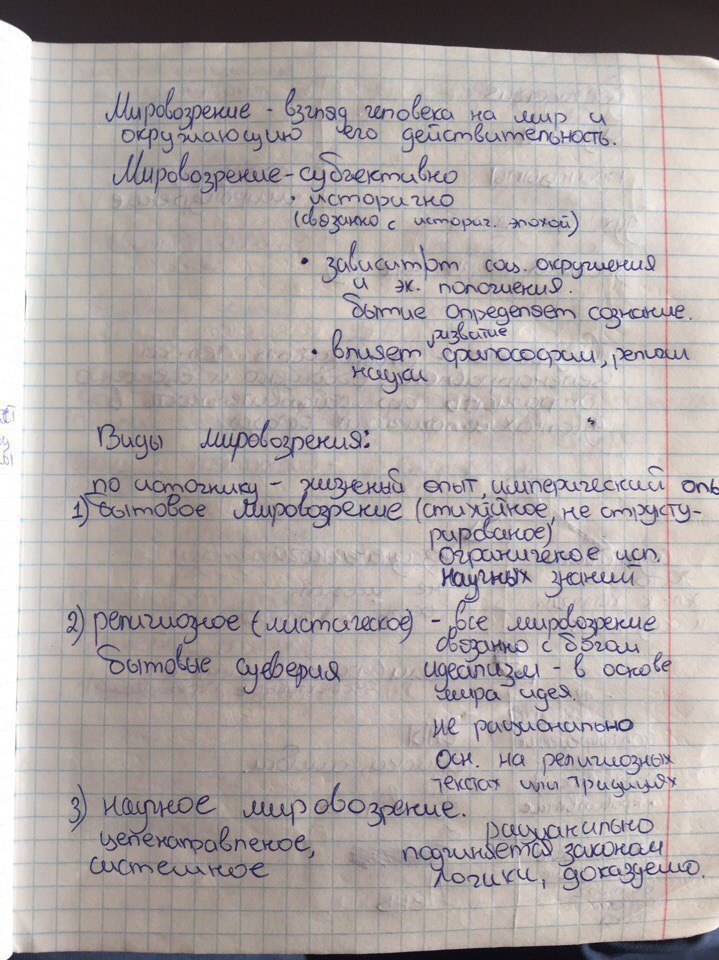 Мировозрение - взгляд человека на мир и
окружающию его действительность.
Мировозрение - субъективно
• исторично
(связанно с историч. эпохой)
• зависит от соц. окружения
и эк. положения.
бытие определяет сознание.
развитие
• влияет философии, религии
науки
Виды мировозрения:
по источнику - жизненый опыт, имперический опы
1) бытовое мировозрение (стихийное, не структу-
рированое)
ограниченое исп.
научных знаний
2) религиозное (мистическое) - все мировозрение
связанно с богом
бытовые суеверия идеализм - в основе
мира идея
не рационально
Осн. на религиозных
текстах или
3) научное мировозрение.
рационально
целенаправленое, подчиняется законам
системное логики, доказуемо.